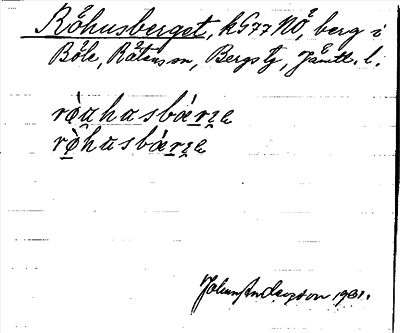 Råhusberget, k577 NÖ, berg i
Böle, Rätansson, Bergs tg, Jämtl. l.
råuhusbǽrɪe
rò̱husbærɪe
Johan Anderzson 1931.